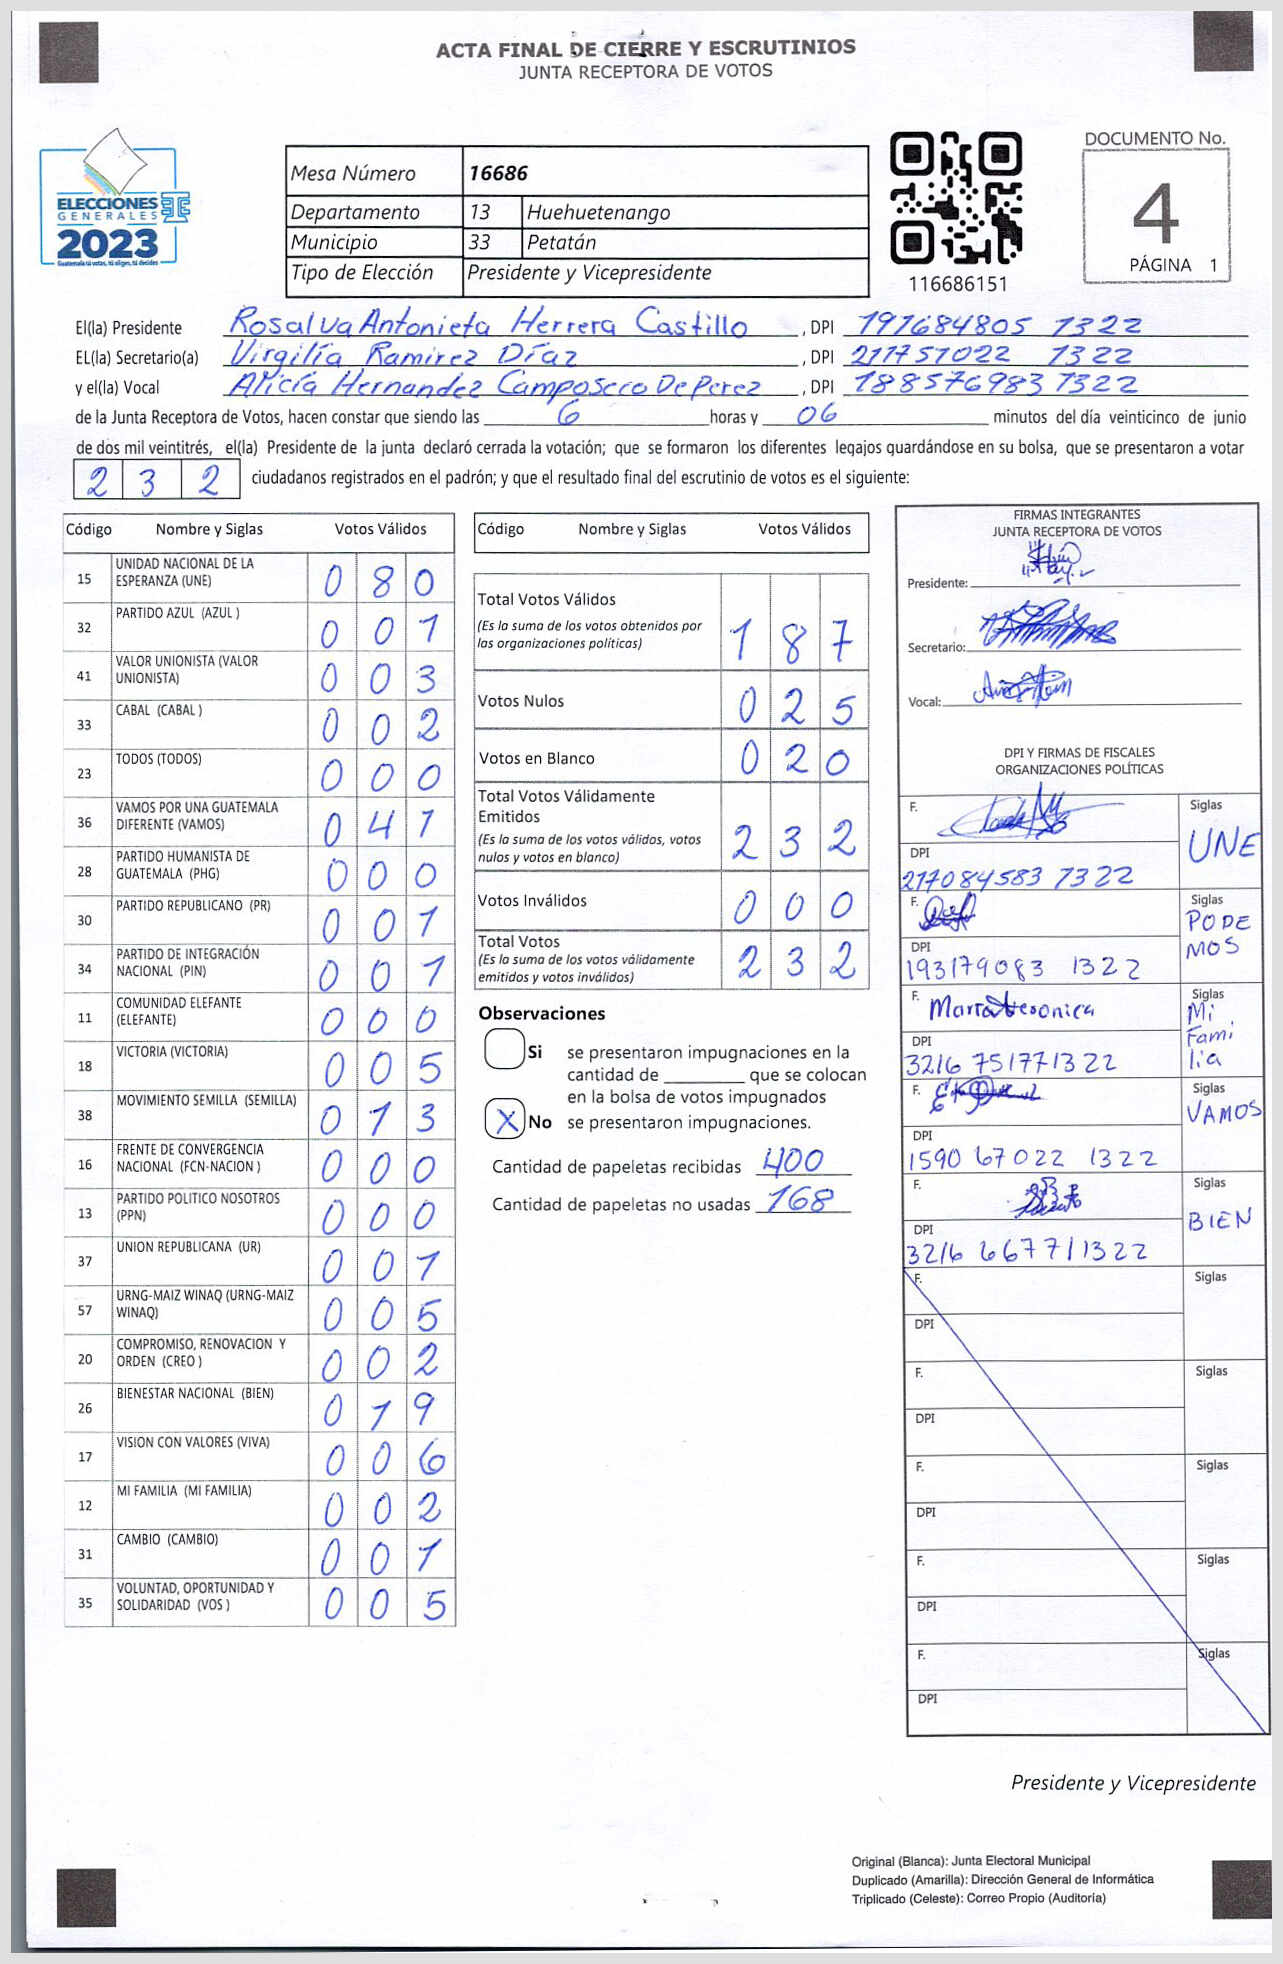 ACTA FINAL DE CIERRE Y ESCRUTINIOS
JUNTA RECEPTORA DE VOTOS
ELECCIONES
GENERALES
2023
Guatemala tú votas, tú eliges, tú decides
Mesa Número 16686
Departamento 13 Huehuetenango
Municipio 33 Petatán
Tipo de Elección Presidente y Vicepresidente
116686151
DOCUMENTO No.
4
PÁGINA 1
El(la) Presidente Rosalva Antonieta Herrera Castillo, DPI 191684805 1322
EL(la) Secretario(a) Virgilia Ramirez Díaz, DPI 211751022 1322
y el(la) Vocal Alicia Hernandez Camposeco De Perez, DPI 188576983 1322
de la Junta Receptora de Votos, hacen constar que siendo las 6 horas y 06 minutos del día veinticinco de junio
de dos mil veintitrés, el(la) Presidente de la junta declaró cerrada la votación; que se formaron los diferentes legajos guardándose en su bolsa, que se presentaron a votar
232 ciudadanos registrados en el padrón; y que el resultado final del escrutinio de votos es el siguiente:
Código Nombre y Siglas Votos Válidos
15 UNIDAD NACIONAL DE LA ESPERANZA (UNE) 080
32 PARTIDO AZUL (AZUL ) 001
41 VALOR UNIONISTA (VALOR UNIONISTA) 003
33 CABAL (CABAL ) 002
23 TODOS (TODOS) 000
36 VAMOS POR UNA GUATEMALA DIFERENTE (VAMOS) 041
28 PARTIDO HUMANISTA DE GUATEMALA (PHG) 000
30 PARTIDO REPUBLICANO (PR) 001
34 PARTIDO DE INTEGRACIÓN NACIONAL (PIN) 001
11 COMUNIDAD ELEFANTE (ELEFANTE) 000
18 VICTORIA (VICTORIA) 005
38 MOVIMIENTO SEMILLA (SEMILLA) 013
16 FRENTE DE CONVERGENCIA NACIONAL (FCN-NACION ) 000
13 PARTIDO POLITICO NOSOTROS (PPN) 000
37 UNION REPUBLICANA (UR) 001
57 URNG-MAIZ WINAQ (URNG-MAIZ WINAQ) 005
20 COMPROMISO, RENOVACION Y ORDEN (CREO ) 002
26 BIENESTAR NACIONAL (BIEN) 019
17 VISION CON VALORES (VIVA) 006
12 MI FAMILIA (MI FAMILIA) 002
31 CAMBIO (CAMBIO) 001
35 VOLUNTAD, OPORTUNIDAD Y SOLIDARIDAD (VOS ) 005
Código Nombre y Siglas Votos Válidos
Total Votos Válidos
(Es la suma de los votos obtenidos por las organizaciones políticas) 187
Votos Nulos 025
Votos en Blanco 020
Total Votos Válidamente Emitidos
(Es la suma de los votos válidos, votos nulos y votos en blanco) 232
Votos Inválidos 000
Total Votos
(Es la suma de los votos válidamente emitidos y votos inválidos) 232
Observaciones
Si se presentaron impugnaciones en la
cantidad de ________ que se colocan
en la bolsa de votos impugnados
X No se presentaron impugnaciones.
Cantidad de papeletas recibidas 400
Cantidad de papeletas no usadas 168
FIRMAS INTEGRANTES
JUNTA RECEPTORA DE VOTOS
Presidente:
Secretario:
Vocal:
DPI Y FIRMAS DE FISCALES
ORGANIZACIONES POLÍTICAS
F. Siglas UNE
DPI
217084583 1322
F. Siglas PODEMOS
DPI
193179083 1322
F. Maria Veronica Siglas Mi Familia
DPI
3216 751771322
F. Siglas VAMOS
DPI
1590 67022 1322
F. Siglas BIEN
DPI
3216 667711322
F. Siglas
DPI
F. Siglas
DPI
F. Siglas
DPI
F. Siglas
DPI
F. Siglas
DPI
Presidente y Vicepresidente
Original (Blanca): Junta Electoral Municipal
Duplicado (Amarilla): Dirección General de Informática
Triplicado (Celeste): Correo Propio (Auditoría)